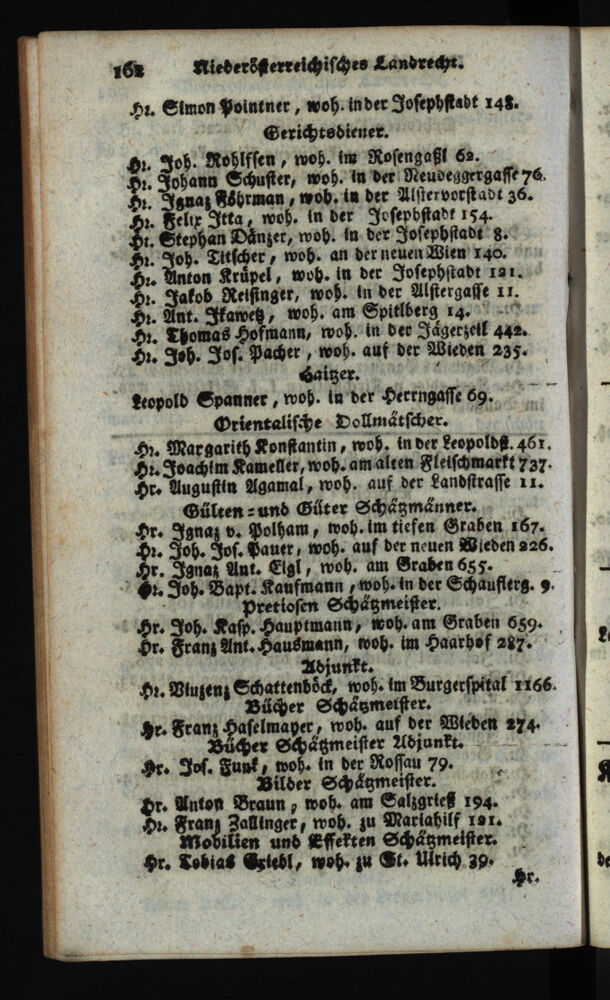 162 Niederösterreichisches Landrecht.
Hr. Simon Pointner, woh. in der Josephstadt 148.
Gerichtsdiener.
Hr. Joh. Rohlfsen, woh. im Rosengaßl 62.
Hr. Johann Schuster, woh. in der Neudeggergasse 76.
Hr. Ignaz Föhrman, woh. in der Alstervorstadt 36.
Hr. Felix Itta, woh. in der Josephstadt 154.
Hr. Stephan Dänzer, woh. in der Josephstadt 8.
Hr. Joh. Titscher, woh. an der neuen Wien 140.
Hr. Anton Krüpel, woh. in der Josephstadt 121.
Hr. Jakob Reisinger, woh. in der Alstergasse 11.
Hr. Ant. Ikawetz, woh. am Spitlberg 14.
Hr. Thomas Hofmann, woh. in der Jägerzeil 442.
Hr. Joh. Jos. Pacher, woh. auf der Wieden 235.
Haitzer.
Leopold Spanner, woh. in der Herrngasse 69.
Orientalische Dollmätscher.
Hr. Margarith Konstantin, woh. in der Leopoldst. 461.
Hr. Joachim Kameller, woh. am alten Fleischmarkt 737.
Hr. Augustin Agamal, woh. auf der Landstrasse 11.
Gülten= und Güter Schätzmänner.
Hr. Ignaz v. Polham, woh. im tiefen Graben 167.
Hr. Joh. Jos. Pauer, woh. auf der neuen Wieden 226.
Hr. Ignaz Ant. Eigl, woh. am Graben 655.
Hr. Joh. Bapt. Kaufmann, woh. in der Schauflerg. 9.
Pretiosen Schätzmeister.
Hr. Joh. Kasp. Hauptmann, woh. am Graben 659.
Hr. Franz Ant. Hausmann, woh. im Haarhof 287.
Adjunkt.
Hr. Vinzenz Schattenböck, woh. im Burgerspital 1166.
Bücher Schätzmeister.
Hr. Franz Haselmayer, woh. auf der Wieden 274.
Bücher Schätzmeister Adjunkt.
Hr. Jos. Funk, woh. in der Rossau 79.
Bilder Schätzmeister.
Hr. Anton Braun, woh. am Salzgrieß 194.
Hr. Franz Zallinger, woh. zu Mariahilf 121.
Mobilien und Effekten Schätzmeister.
Hr. Tobias Griedl, woh. zu St. Ulrich 39.
Hr.